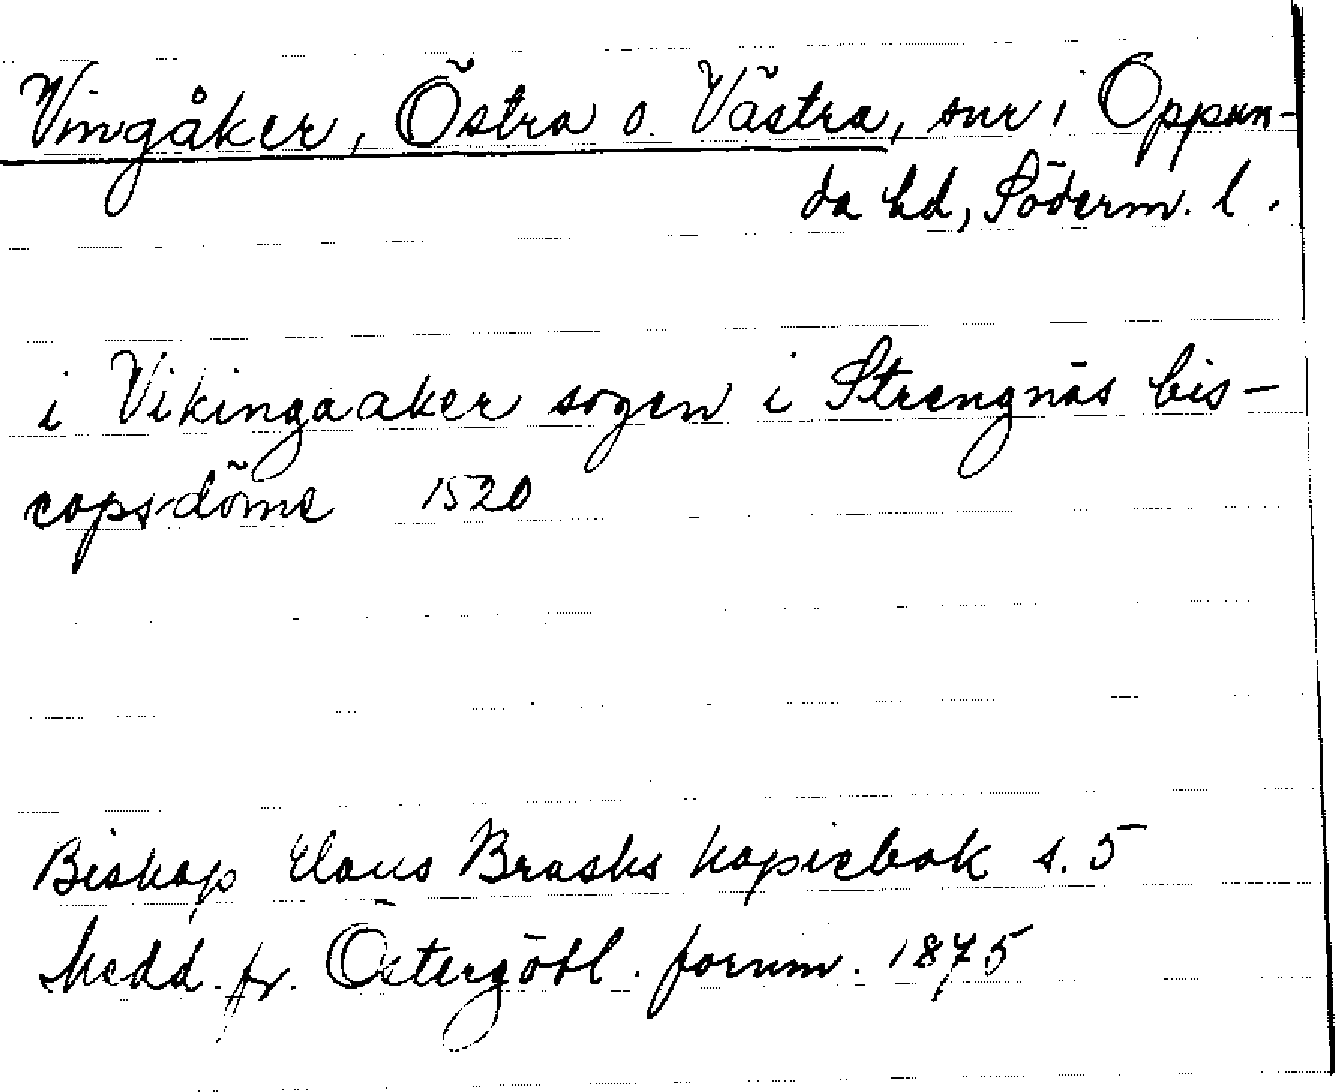 Vingåker, Östra o. Västra, snr i Oppun-
da hd, Söderm. l.
i Vikingaaker sogen i Strengnäs bis-
copsdöme 1520
Biskop Claus Brasks kopiebok s. 5
Medd. fr. Östergötl. fornm. 1875